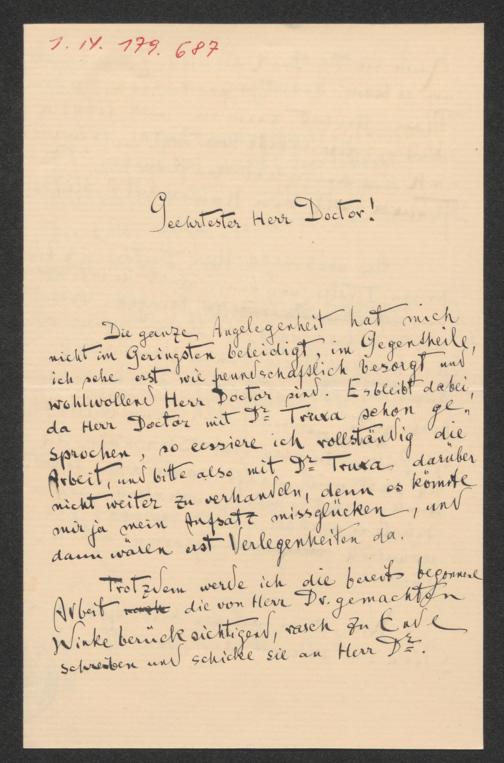 1. IV. 179. 687
Geehrtester Herr Doctor!
Die ganze Angelegenheit hat mich
nicht im Geringsten beleidigt, im Gegentheile,
ich sehe erst wie freundschaftlich besorgt und
wohlwollend Herr Doctor sind. Es bleibt dabei,
da Herr Doctor mit Dr Truxa schon ge-
sprochen, so cessiere ich vollständig die
Arbeit, und bitte also mit Dr Truxa darüber
nicht weiter zu verhandeln, denn es könnte
mir ja mein Aufsatz missglücken, und
dann wären erst Verlegenheiten da.
Trotzdem werde ich die bereits begonnene
Arbeit die von Herr Dr. gemachten
Winke berücksichtigend, rasch zu Ende
schreiben und schicke sie an Herr Dr.